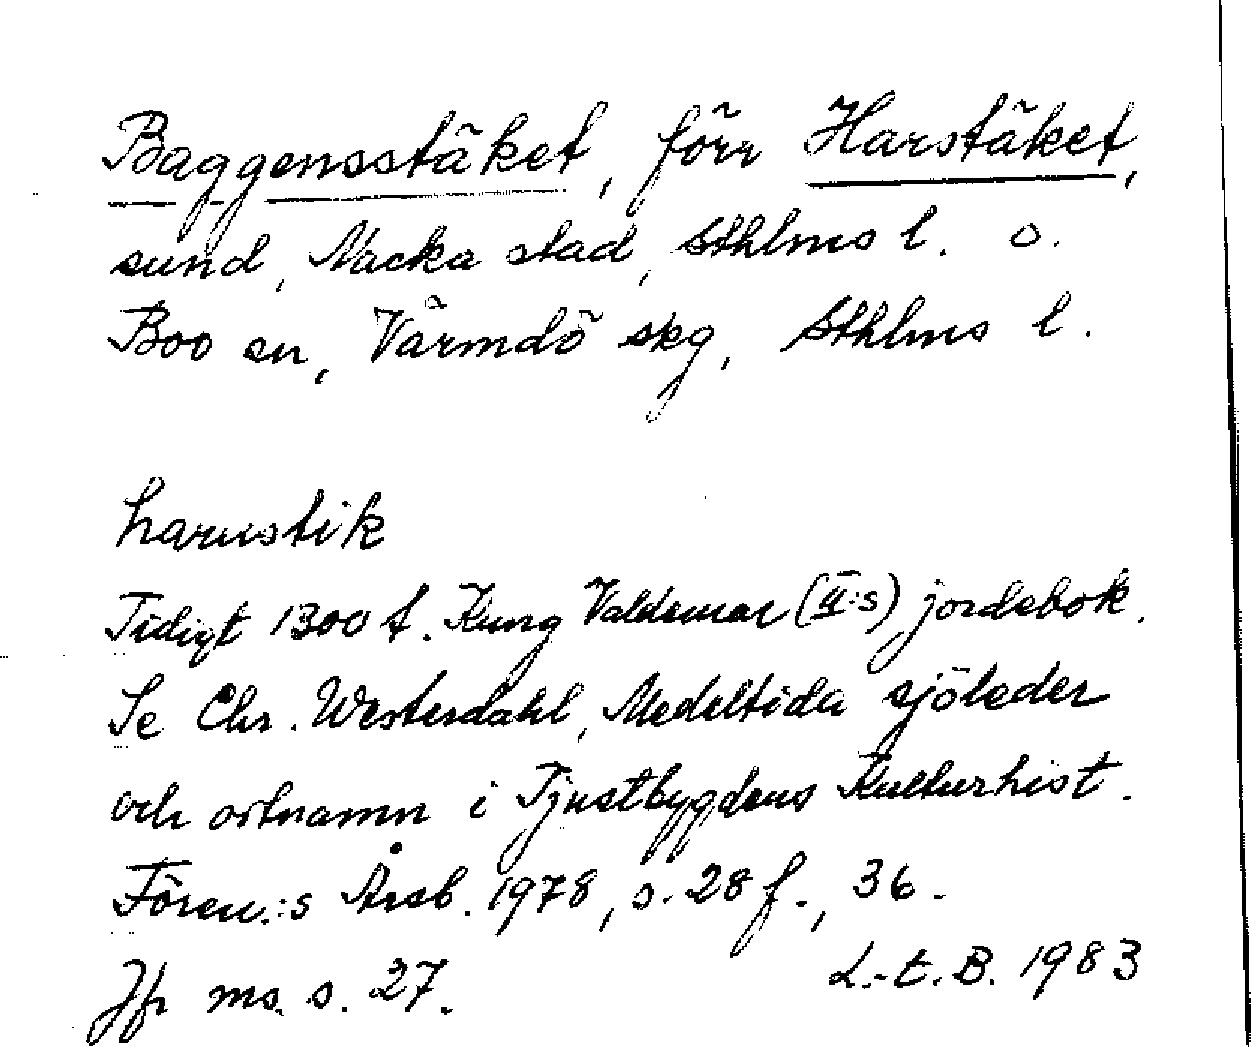 Baggensstäket, förr Harstäket,
sund, Nacka stad, Sthlms l. o.
Boo sn, Värmdö skg, Sthlms l.
harustik
Tidigt 1300 t. Kung Valdemar (II:s) jordebok.
Se Chr. Westerdahl, Medeltida sjöleder
och ortnamn i Tjustbygdens Kulturhist.
Fören.:s Årsb. 1978, s. 28 f., 36.
Jfr ms. s. 27.
L.-E. B. 1983